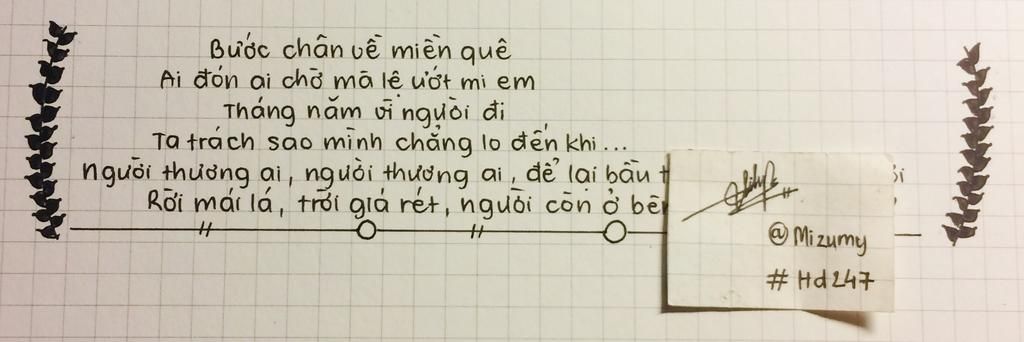 Bước chân về miền quê
Ai đón ai chờ mà lệ ướt mi em
Tháng năm vì người đi
Ta trách sao mình chẳng lo đến khi...
người thương ai, người thương ai, để lại bầu
Rời mái lá, trời giá rét, người còn ở
@Mizumy
#Hd247